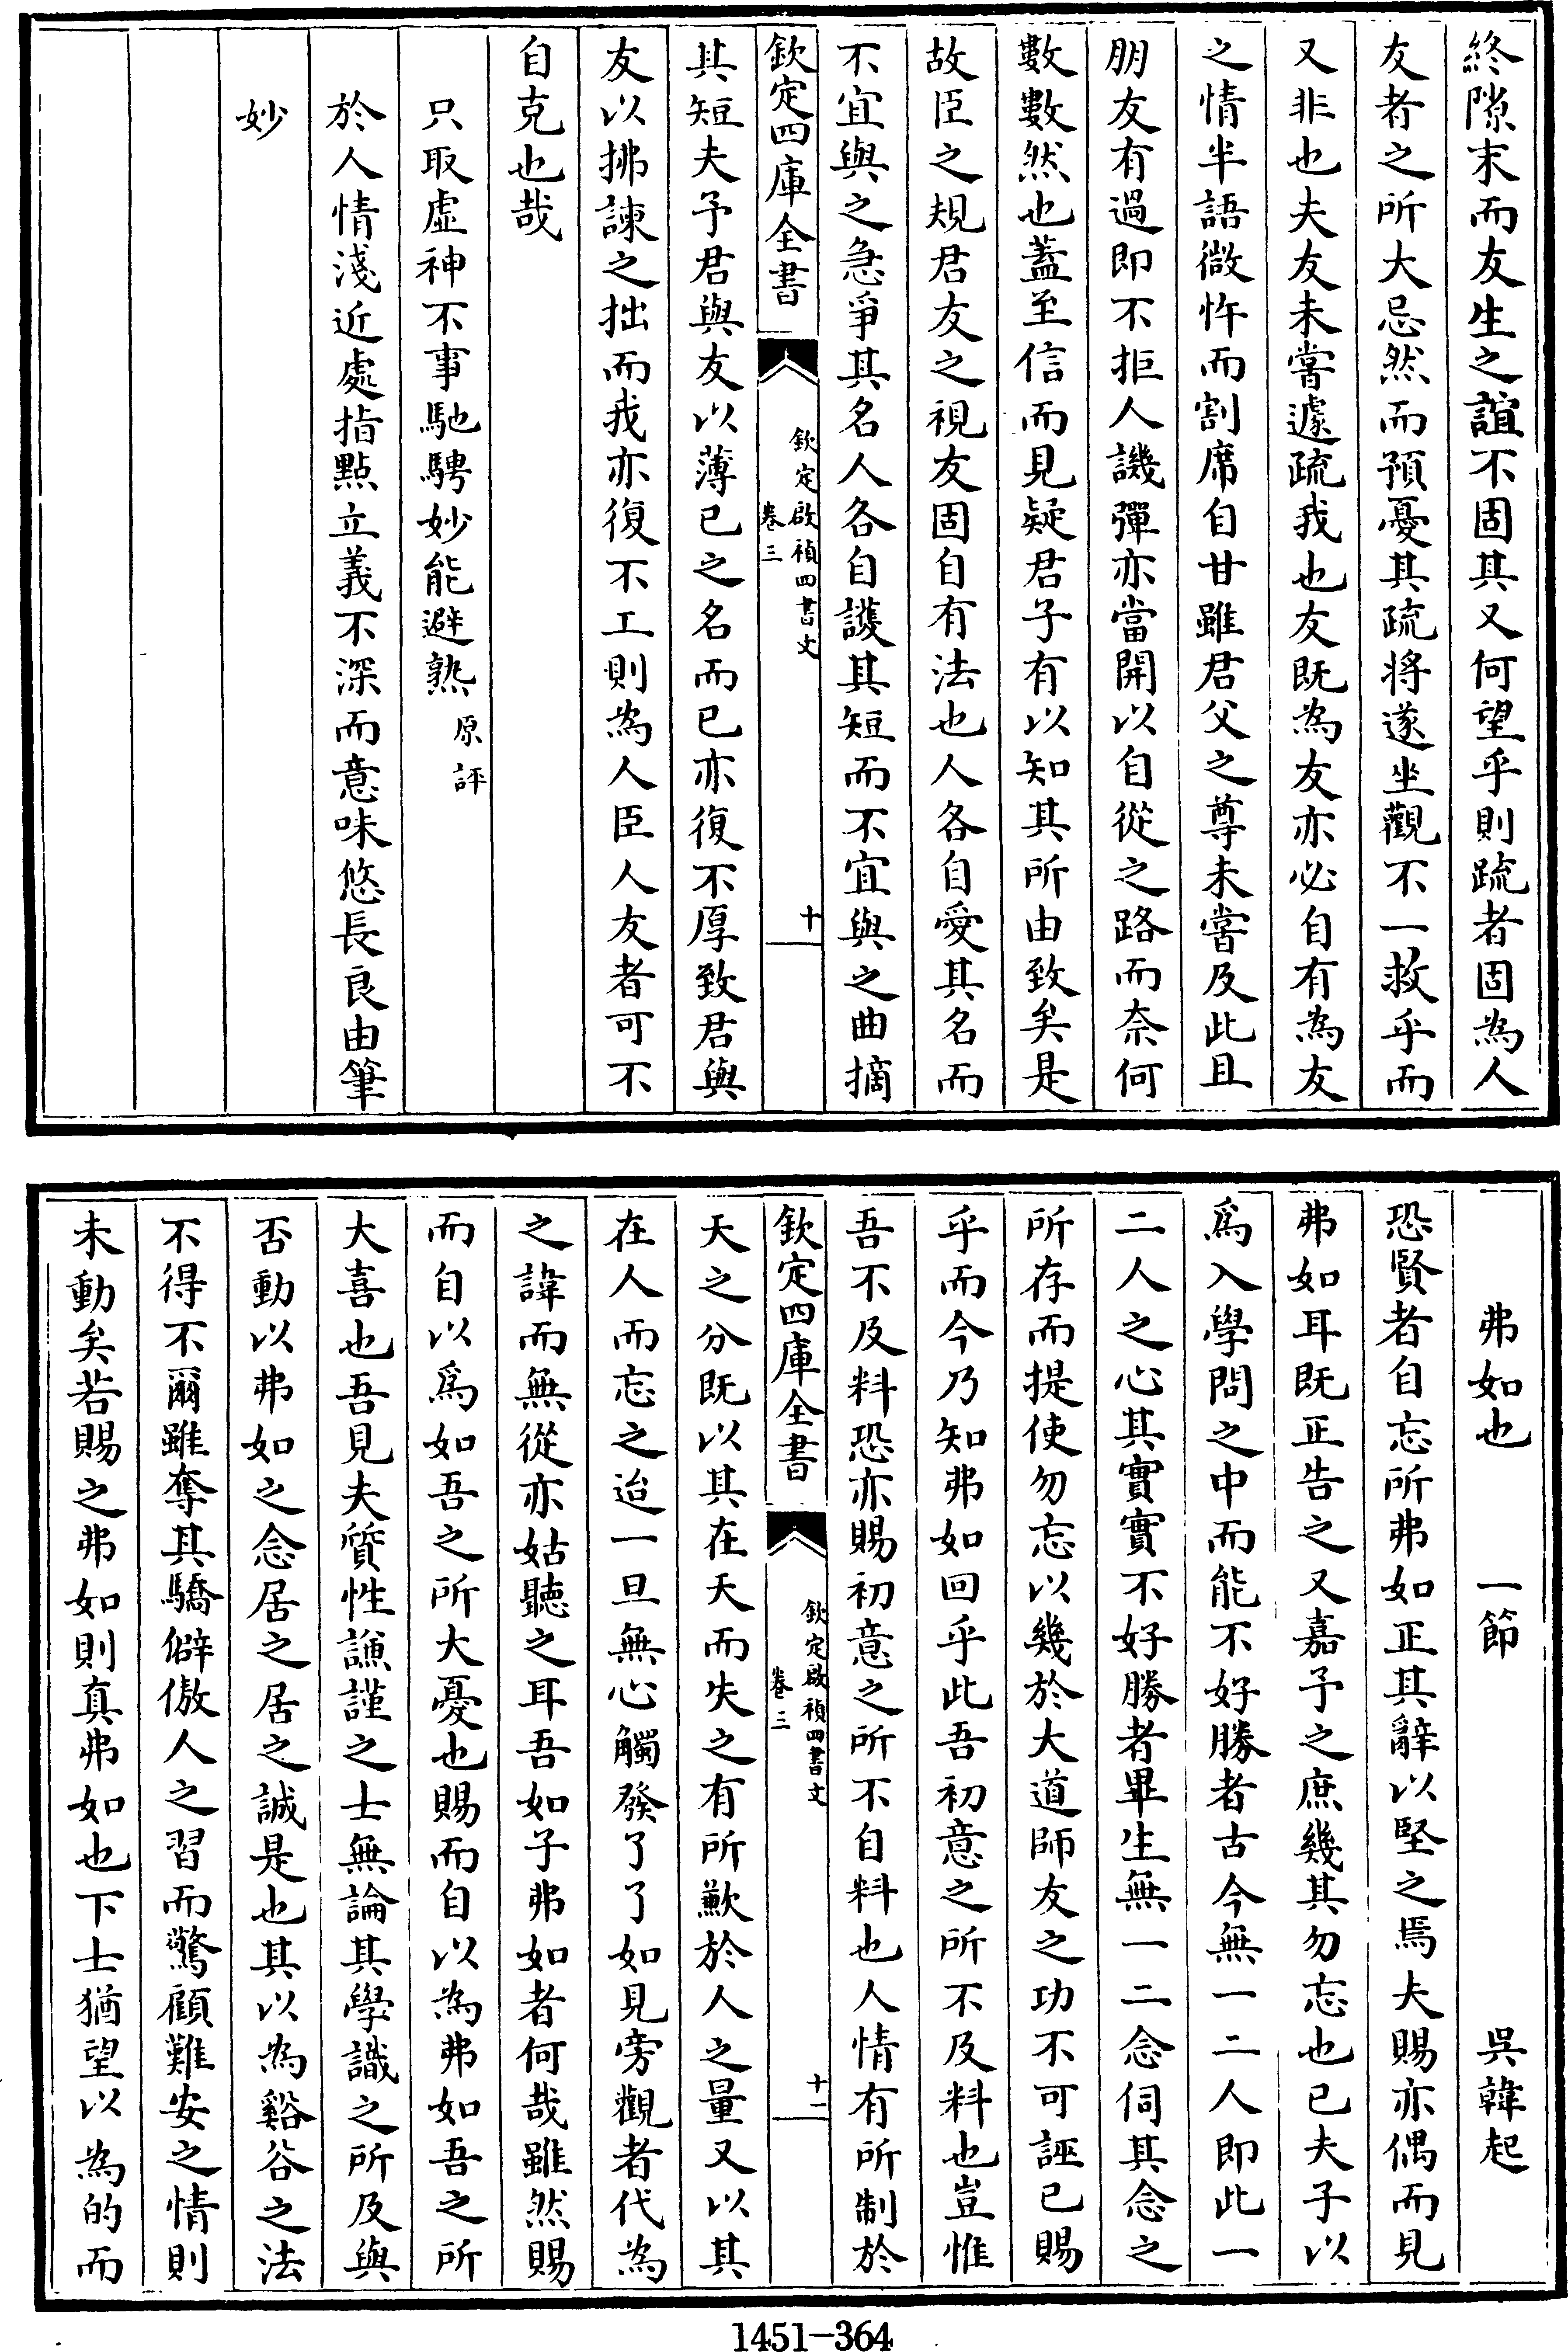 終隙末而友生之誼不固其又何望乎則疏者固為人
友者之所大忌然而預憂其疏將遂坐觀不一救乎而
又非也夫友未嘗遽疏我也友既為友亦必自有為友
之情半語微忤而割席自甘雖君父之尊未嘗及此且
朋友有過即不拒人譏彈亦當開以自從之路而奈何
數數然也蓋至信而見疑君子有以知其所由致矣是
故臣之規君友之視友固自有法也人各自愛其名而
不宜與之急爭其名人各自護其短而不宜與之曲摘
欽定四庫全書
欽定啟禎四書文
卷三
十一
其短夫予君與友以薄已之名而已亦復不厚致君與
友以拂諫之拙而我亦復不工則為人臣人友者可不
自克也哉
只取虛神不事馳騁妙能避熟原評
於人情淺近處指點立義不深而意味悠長良由筆
妙
弗如也 一節 吳韓起
恐賢者自忘所弗如正其辭以堅之焉夫賜亦偶而見
弗如耳既正告之又嘉予之庶幾其勿忘也已夫子以
爲入學問之中而能不好勝者古今無一二人即此一
二人之心其實實不好勝者畢生無一二念伺其念之
所存而提使勿忘以幾於大道師友之功不可誣已賜
乎而今乃知弗如回乎此吾初意之所不及料也豈惟
吾不及料恐亦賜初意之所不自料也人情有所制於
欽定四庫全書
欽定啟禎四書文
卷三
十二
天之分既以其在天而失之有所歉於人之量又以其
在人而忘之迨一旦無心觸發了了如見旁觀者代為
之諱而無從亦姑聽之耳吾如子弗如者何哉雖然賜
而自以爲如吾之所大憂也賜而自以為弗如吾之所
大喜也吾見夫質性謙謹之士無論其學識之所及與
否動以弗如之念居之居之誠是也其以為谿谷之法
不得不爾雖奪其驕僻傲人之習而驚顧難安之情則
未動矣若賜之弗如則真弗如也下士猶望以為的而
1451-364